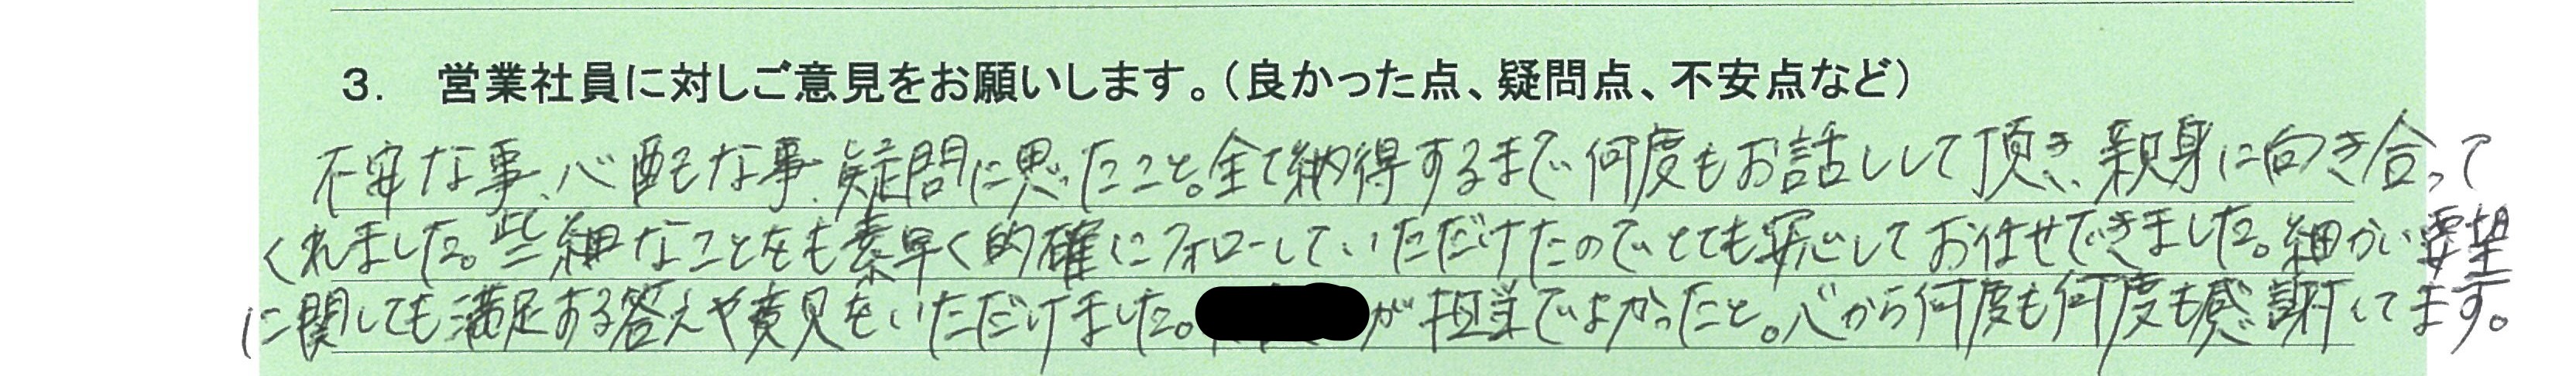 ３．　営業社員に対しご意見をお願いします。（良かった点、疑問点、不安点など）
不安な事、心配な事、疑問に思ったこと。全て納得するまで何度もお話しして頂き、親身に向き合って
くれました。些細なことをも素早く的確にフォローしていただけたのでとても安心しておまかせできました。細かい要望
に関しても満足ある答えや意見をいただけました。が担当でよかったと。心から何度も何度も感謝してます。